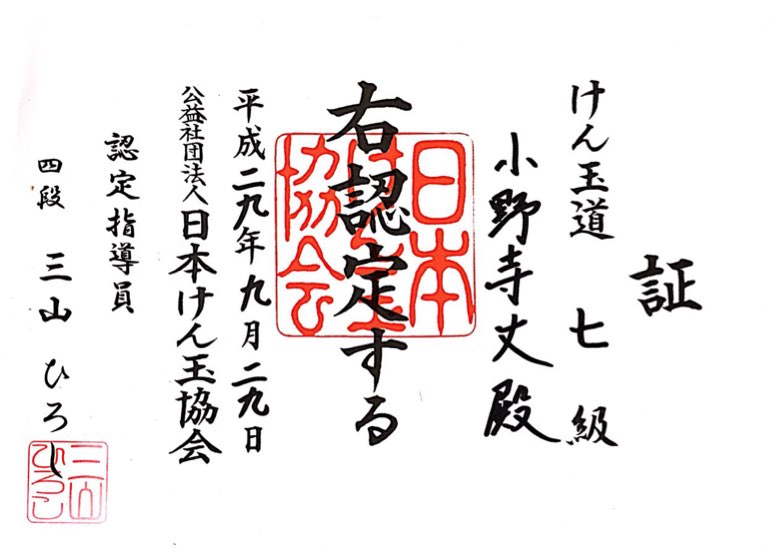 証
けん玉道 七級
小野寺丈殿
右認定する
日本けん玉協会
平成二九年九月二九日
公益社団法人日本けん玉協会
認定指導員
四段 三山 ひろし
三山ひろし